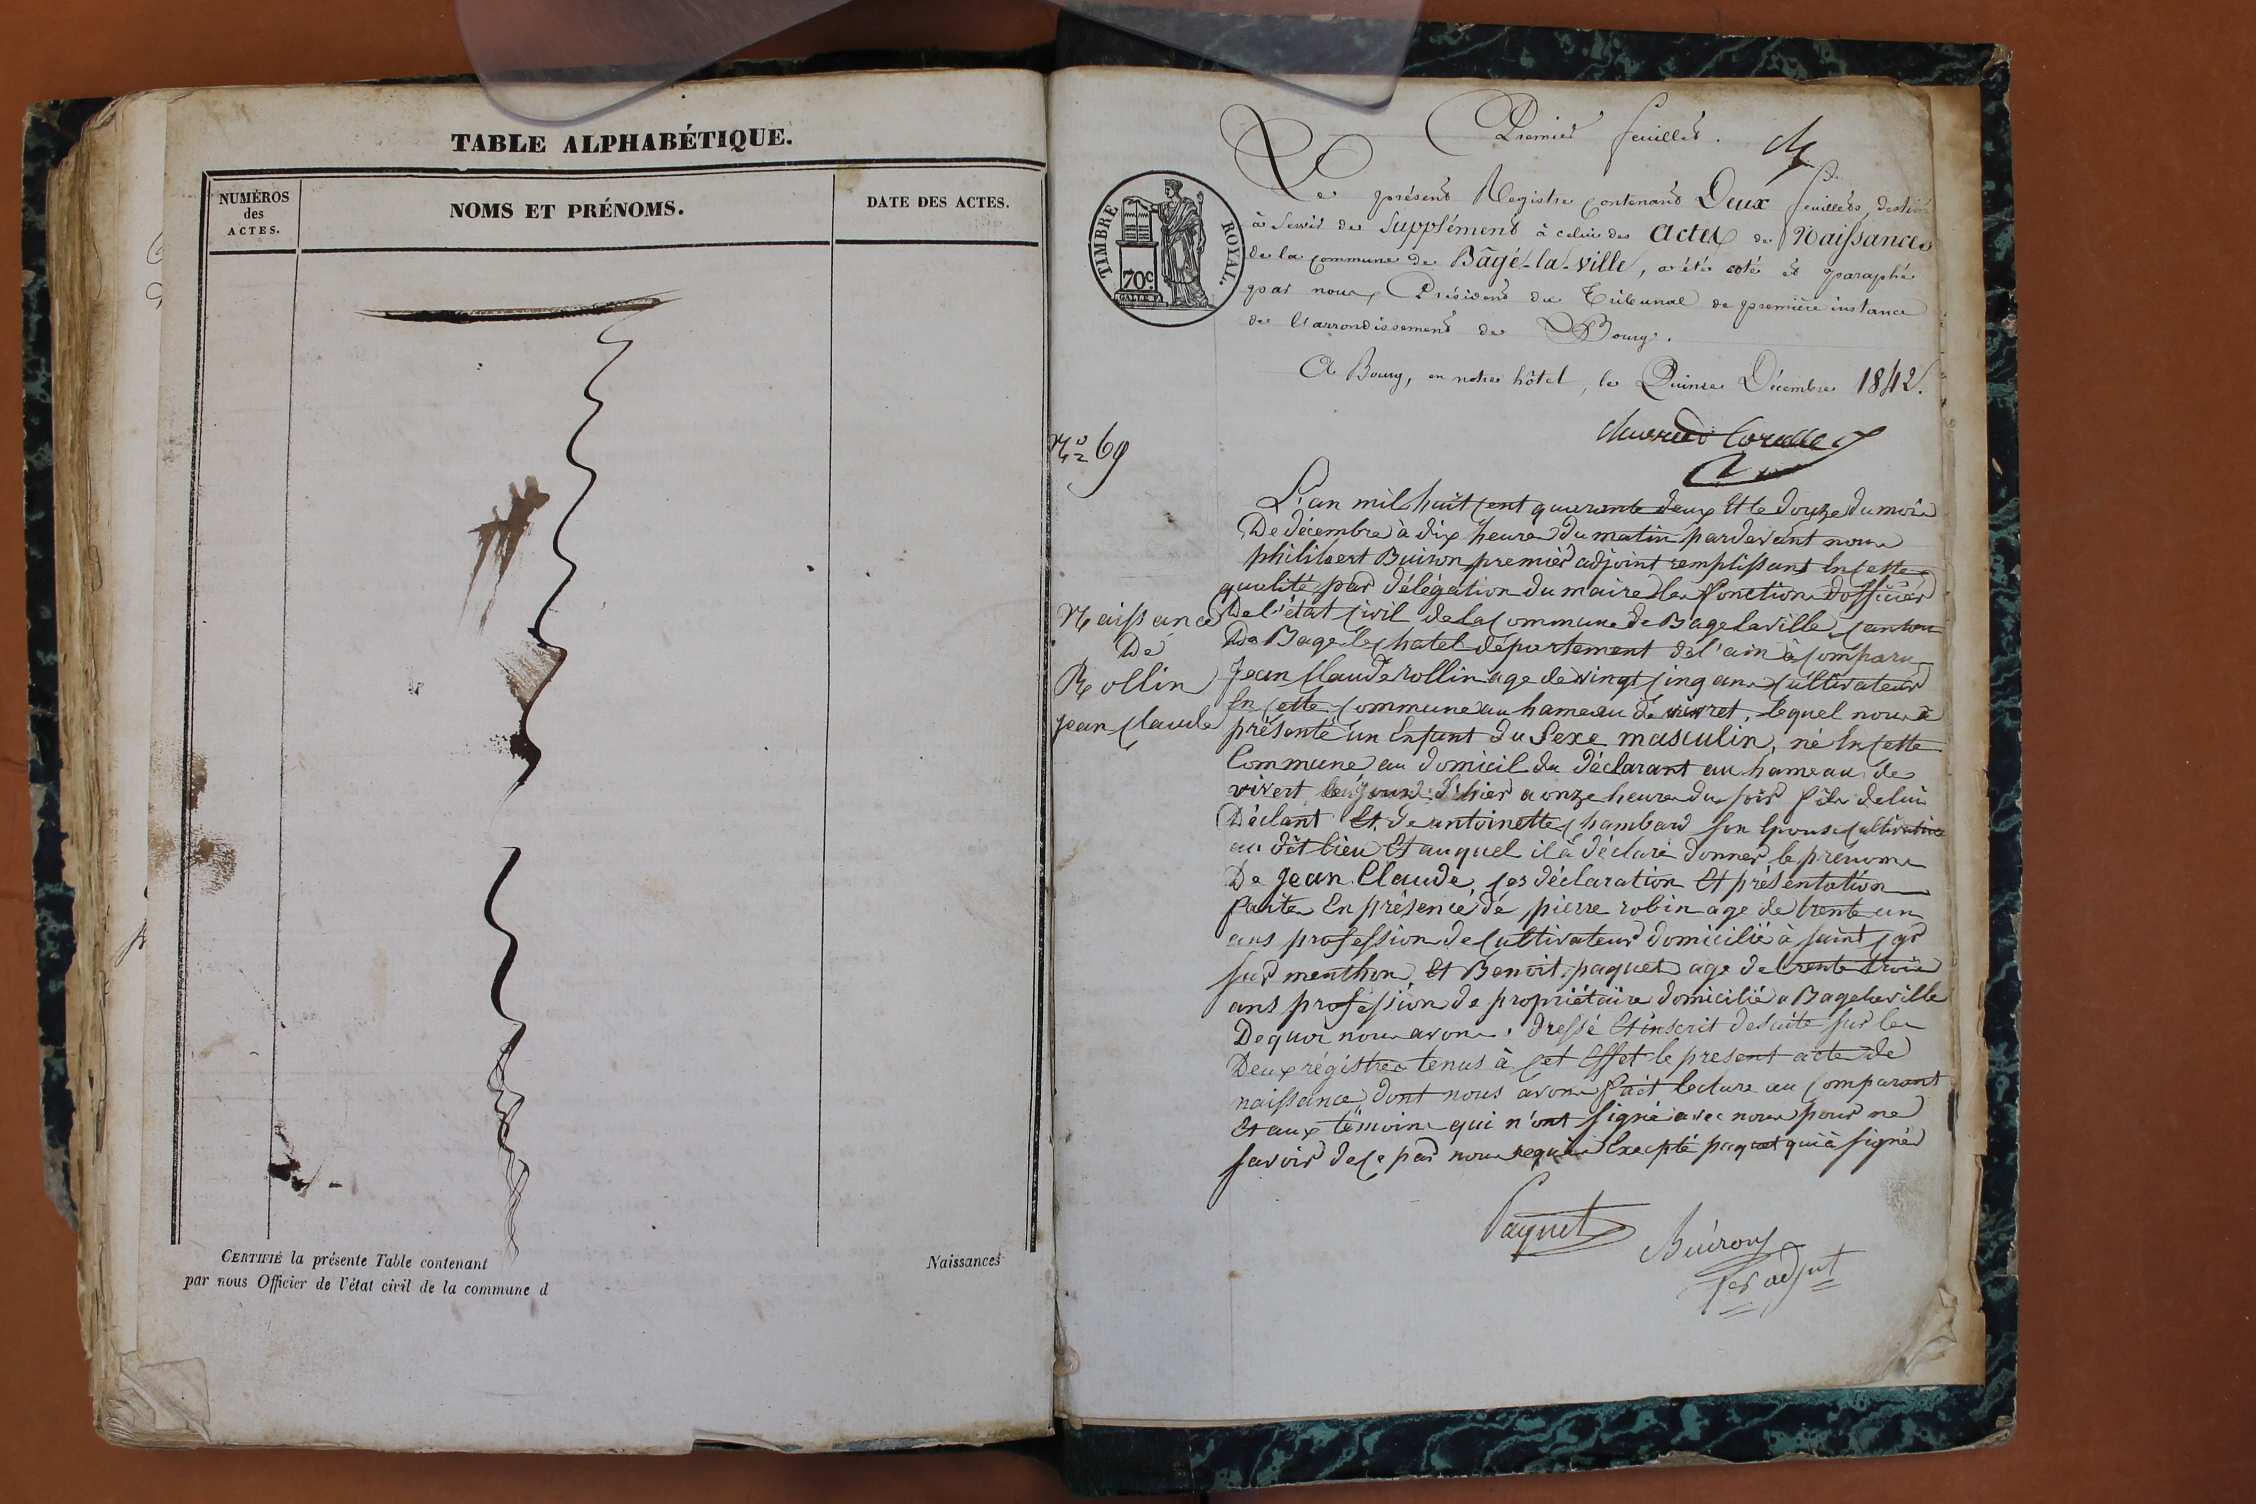 TABLE ALPHABÉTIQUE.
NUMÉROS
des
ACTES.
NOMS ET PRÉNOMS.
DATE DES ACTES.
CERTIFIÉ la présente Table contenant
Naissances
par nous Officier de l'état civil de la commune d
Premier feuillet.
TIMBRE ROYAL.
70c
Le présent Registre contenant Deux feuillets, destiné
à servir de Supplément à celui des Actes de Naissances
de la commune de Bâgé-la-ville, a été coté et paraphé
par nous, Président du Tribunal de première instance
de l'arrondissement de Bourg.
A Bourg, en notre hôtel, le Quinze Décembre 1842.
No 69
Naissance
De
Rollin
jean Claude
L'an mil huit cent quarante deux Et le douze du mois
De décembre à dix heures du matin pardevant nous
philibert Buiron premier adjoint remplissant En cette
qualité par délégation du maire les fonctions d'officier
De l'état Civil de la Commune de Bagelaville Canton
De Bage le Chatel département de l'ain à Comparu
Jean Claude rollin age de vingt Cinq ans Cultivateur
En Cette Commune au hameau de vivret, lequel nous à
présenté un Enfant du Sexe masculin, né En Cette
Commune au domicil du déclarant au hameau de
vivert le jour d'hier a onze heures du soir fils de lui
Déclant Et de antoinette Chambard son Epouse Cultivatrice
au dit lieu Et auquel il à déclaré donner le prénoms
De Jean Claude, Ces déclaration Et présentation
faites En présence de pierre robin age de trente un
ans profession de Cultivateur domicilié à saint Cyr
sur menthon, Et Benoit paquet age de trente trois
ans profession de propriétaire domicilié a Bagelaville
De quoi nous avons dressé Et inscrit de suite sur les
Deux régistres tenus à Cet Effet le present acte de
naissance dont nous avons fait lecture au Comparant
Et aux témoins qui n'ont signé avec nous pour ne
savoir de Ce par nous requis Excepté paquet qui à signé
Paquet
Buiron
1er adjnt